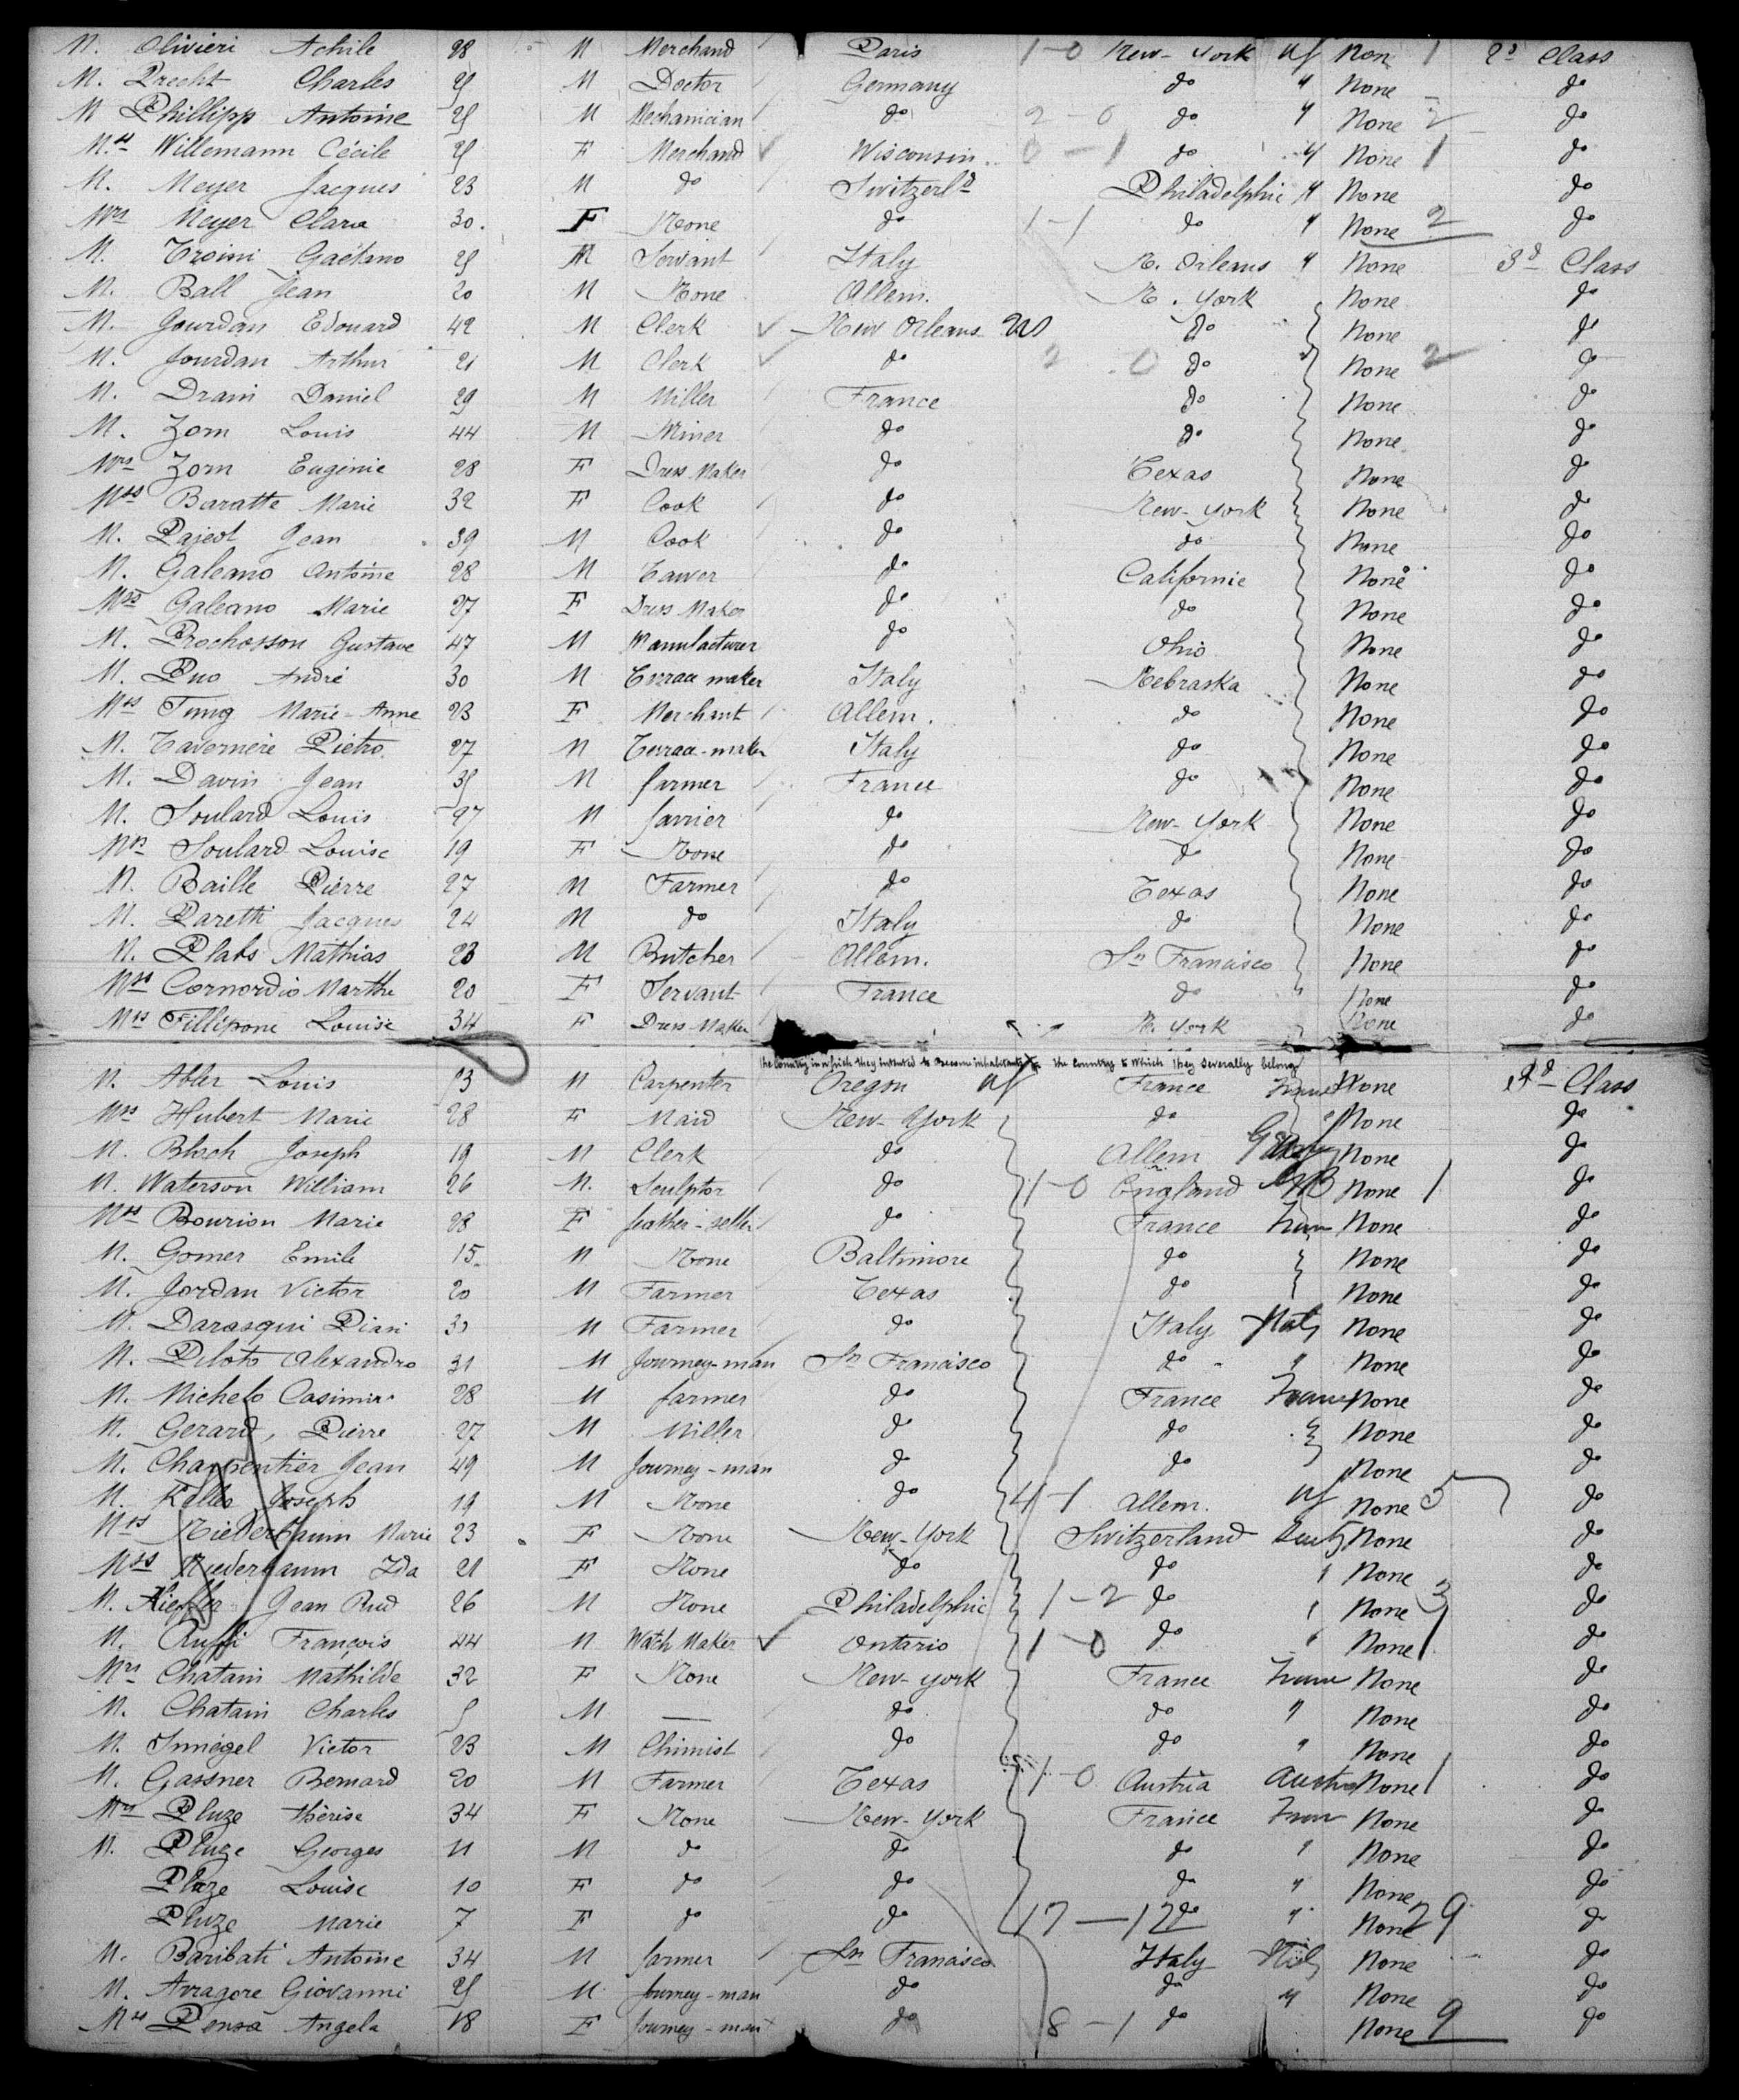 M. Olivieri Achile 28 M Merchand Paris 1-0 New-York US None 1 2d Class
M. Precht Charles 25 M Doctor Germany do " None do
M Phillipp Antoine 25 M Mechanician do 2-0 do " None 2 do
Mss Willemann Cécile 25 F Merchand Wisconsin 0-1 do " None 1 do
M. Meyer Jacques 23 M do Switzerld Philadelphie " None do
Mrs Meyer Clara 30. F None do 1-1 do " None 2 do
M. Troini Gaétano 25 M Servant Italy N. Orleans " None 3d Class
M. Ball Jean 20 M None Allem. N. York None do
M. Jourdan Edouard 42 M Clerk New Orleans US do None do
M. Jourdan Arthur 21 M Clerk do 2-0 do None 2 do
M. Drain Daniel 29 M Miller France do None do
M. Zorn Louis 44 M Miner do do None do
Mrs Zorn Eugénie 28 F Dress Maker do Texas None do
Mss Baratte Marie 32 F Cook do New-York None do
M. Pajeot Jean 39 M Cook do do None do
M. Galeano Antoine 28 M Tawer do Californie None do
Mss Galeano Marie 27 F Dress Maker do do None do
M. Prochasson Gustave 47 M Manufacturer do Ohio None do
M. Puo André 30 M Terrace maker Italy Nebraska None do
Mss Tung Marie-Anne 23 F Merchant Allem. do None do
M. Tavernere Piétro 27 M Terrace-maker Italy do None do
M. Davin Jean 35 M farmer France do None do
M. Soulard Louis 27 M farrier do New-York None do
Mrs Soulard Louise 19 F None do do None do
M. Baille Pierre 27 M Farmer do Texas None do
M. Paretti Jacques 24 M do Italy do None do
M. Plats Mathias 23 M Butcher Allem. Sn Francisco None do
Mss Cornordio Marthe 20 F Servant France do None do
Mss Fillipone Louise 34 F Dress Maker N. York None do
the Country in which they intented to Become inhabitants The Country to Which They Severally belong
M. Abler Louis 23 M Carpenter Oregon US France None 3d Class
Mss Hubert Marie 28 F Maid New-York do " None do
M. Bloch Joseph 19 M Clerk do Allem None do
M. Waterson William 26 M. Sculptor do 1-0 England None 1 do
Mss Bourion Marie 28 F feather-seller do France None do
M. Gomer Emile 15 M None Baltimore do None do
M. Jordan Victor 20 M Farmer Texas do None do
M. Darasqui Piari M Farmer do Italy Italy None do
M. Piloto Alexandro 31 M Journey-man Sn Francisco do " None do
M. Michelo Casimir 28 M farmer do France None do
M. Gerard, Pierre 27 M Miller do do None do
M. Charpentier Jean 49 M Journey-man do do None do
M. Keller Joseph 19 M None do 4-1 Allem. None 5 do
Mss Niederhaum Marie 23 F None New-York Switzerland None do
Mss Niederhaum Ida 21 F None do do " None do
M. Kiefer Jean Rud 26 M None Philadelphie 1-2 do " None 3 do
M. Ruffi François 44 M Watch Maker Ontario 1-0 do " None 1 do
Mrs Chatain Mathilde 32 F None New-York France None do
M. Chatain Charles 5 M — do do " None do
M. Innégel Victor 23 M Chimist do do " None do
M. Gassner Bernard 20 M Farmer Texas 1-0 Austria None 1 do
Mrs Pluze thérèse 34 F None New-York France None do
M. Pluze Georges 11 M do do do " None do
Pluze Louise 10 F do do do " None do
Pluze Marie 7 F do do 17-12 do " None 29 do
M. Baribati Antoine 34 M farmer Sn Francisco Italy None do
M. Arragore Giovanni 25 M Journey-man do do " None do
Mss Pensa Angela 18 F Journey-man do 8-1 do None 9 do